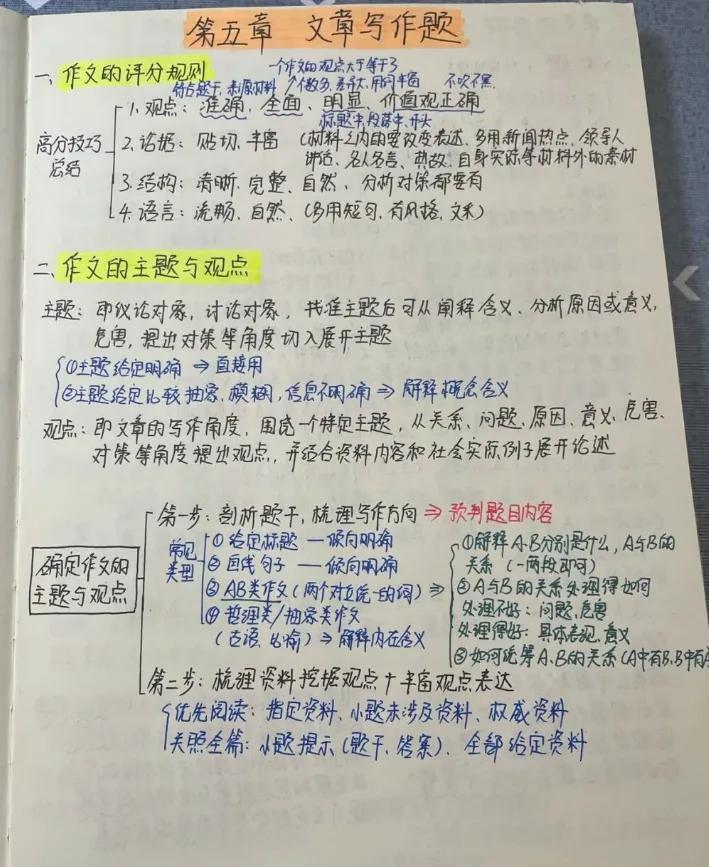 第五章 文章写作题
一、作文的评分规则
一个作文的观点大于等于3
符合题干、来源材料 个数多、差异大、用词丰富 不吹不黑
1. 观点：准确、全面、明显、价值观正确
标题中、段落中、开头
高分技巧总结
2. 论据：贴切、丰富 (材料之内的要改变表达、多用新闻热点、领导人
讲话、名人名言、典故、自身实际等材料外的素材
3. 结构：清晰、完整、自然、分析对策都要有
4. 语言：流畅、自然、(多用短句、有风格、文采)
二、作文的主题与观点
主题：即议论对象，讨论对象，找准主题后可从阐释含义、分析原因或意义，
危害，提出对策等角度切入展开主题
①主题给定明确 ⇒ 直接用
②主题给定比较抽象、模糊，信息不明确 ⇒ 解释概念含义
观点：即文章的写作角度，围绕一个特定主题，从关系、问题、原因、意义、危害、
对策等角度提出观点，并结合资料内容和社会实际例子展开论述
确定作文的主题与观点
第一步：剖析题干，梳理写作方向 ⇒ 预判题目内容
常见类型
① 给定标题 — 倾向明确
② 画线句子 — 倾向明确
③ AB类作文(两个对立统一的词) ⇒
④ 哲理类/抽象类作文
(古语、比喻) ⇒ 解释内在含义
①解释A、B分别是什么，A与B的
关系 (一两段即可)
②A与B的关系处理得如何
处理不好：问题、危害
处理得好：具体表现、意义
③如何统筹A、B的关系(A中有B、B中有A
第二步：梳理资料挖掘观点+丰富观点表达
优先阅读：指定资料、小题未涉及资料、权威资料
关照全篇：小题提示(题干、答案)、全部给定资料